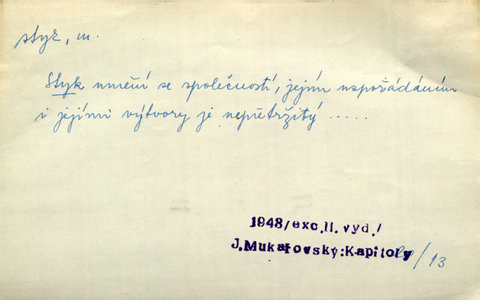 styk, m.
Styk umění se společností, jejím uspořádáním
i jejími výtvory je nepřetržitý .....
1948/exc.II.vyd./
J.Mukařovský:Kapitoly
/13